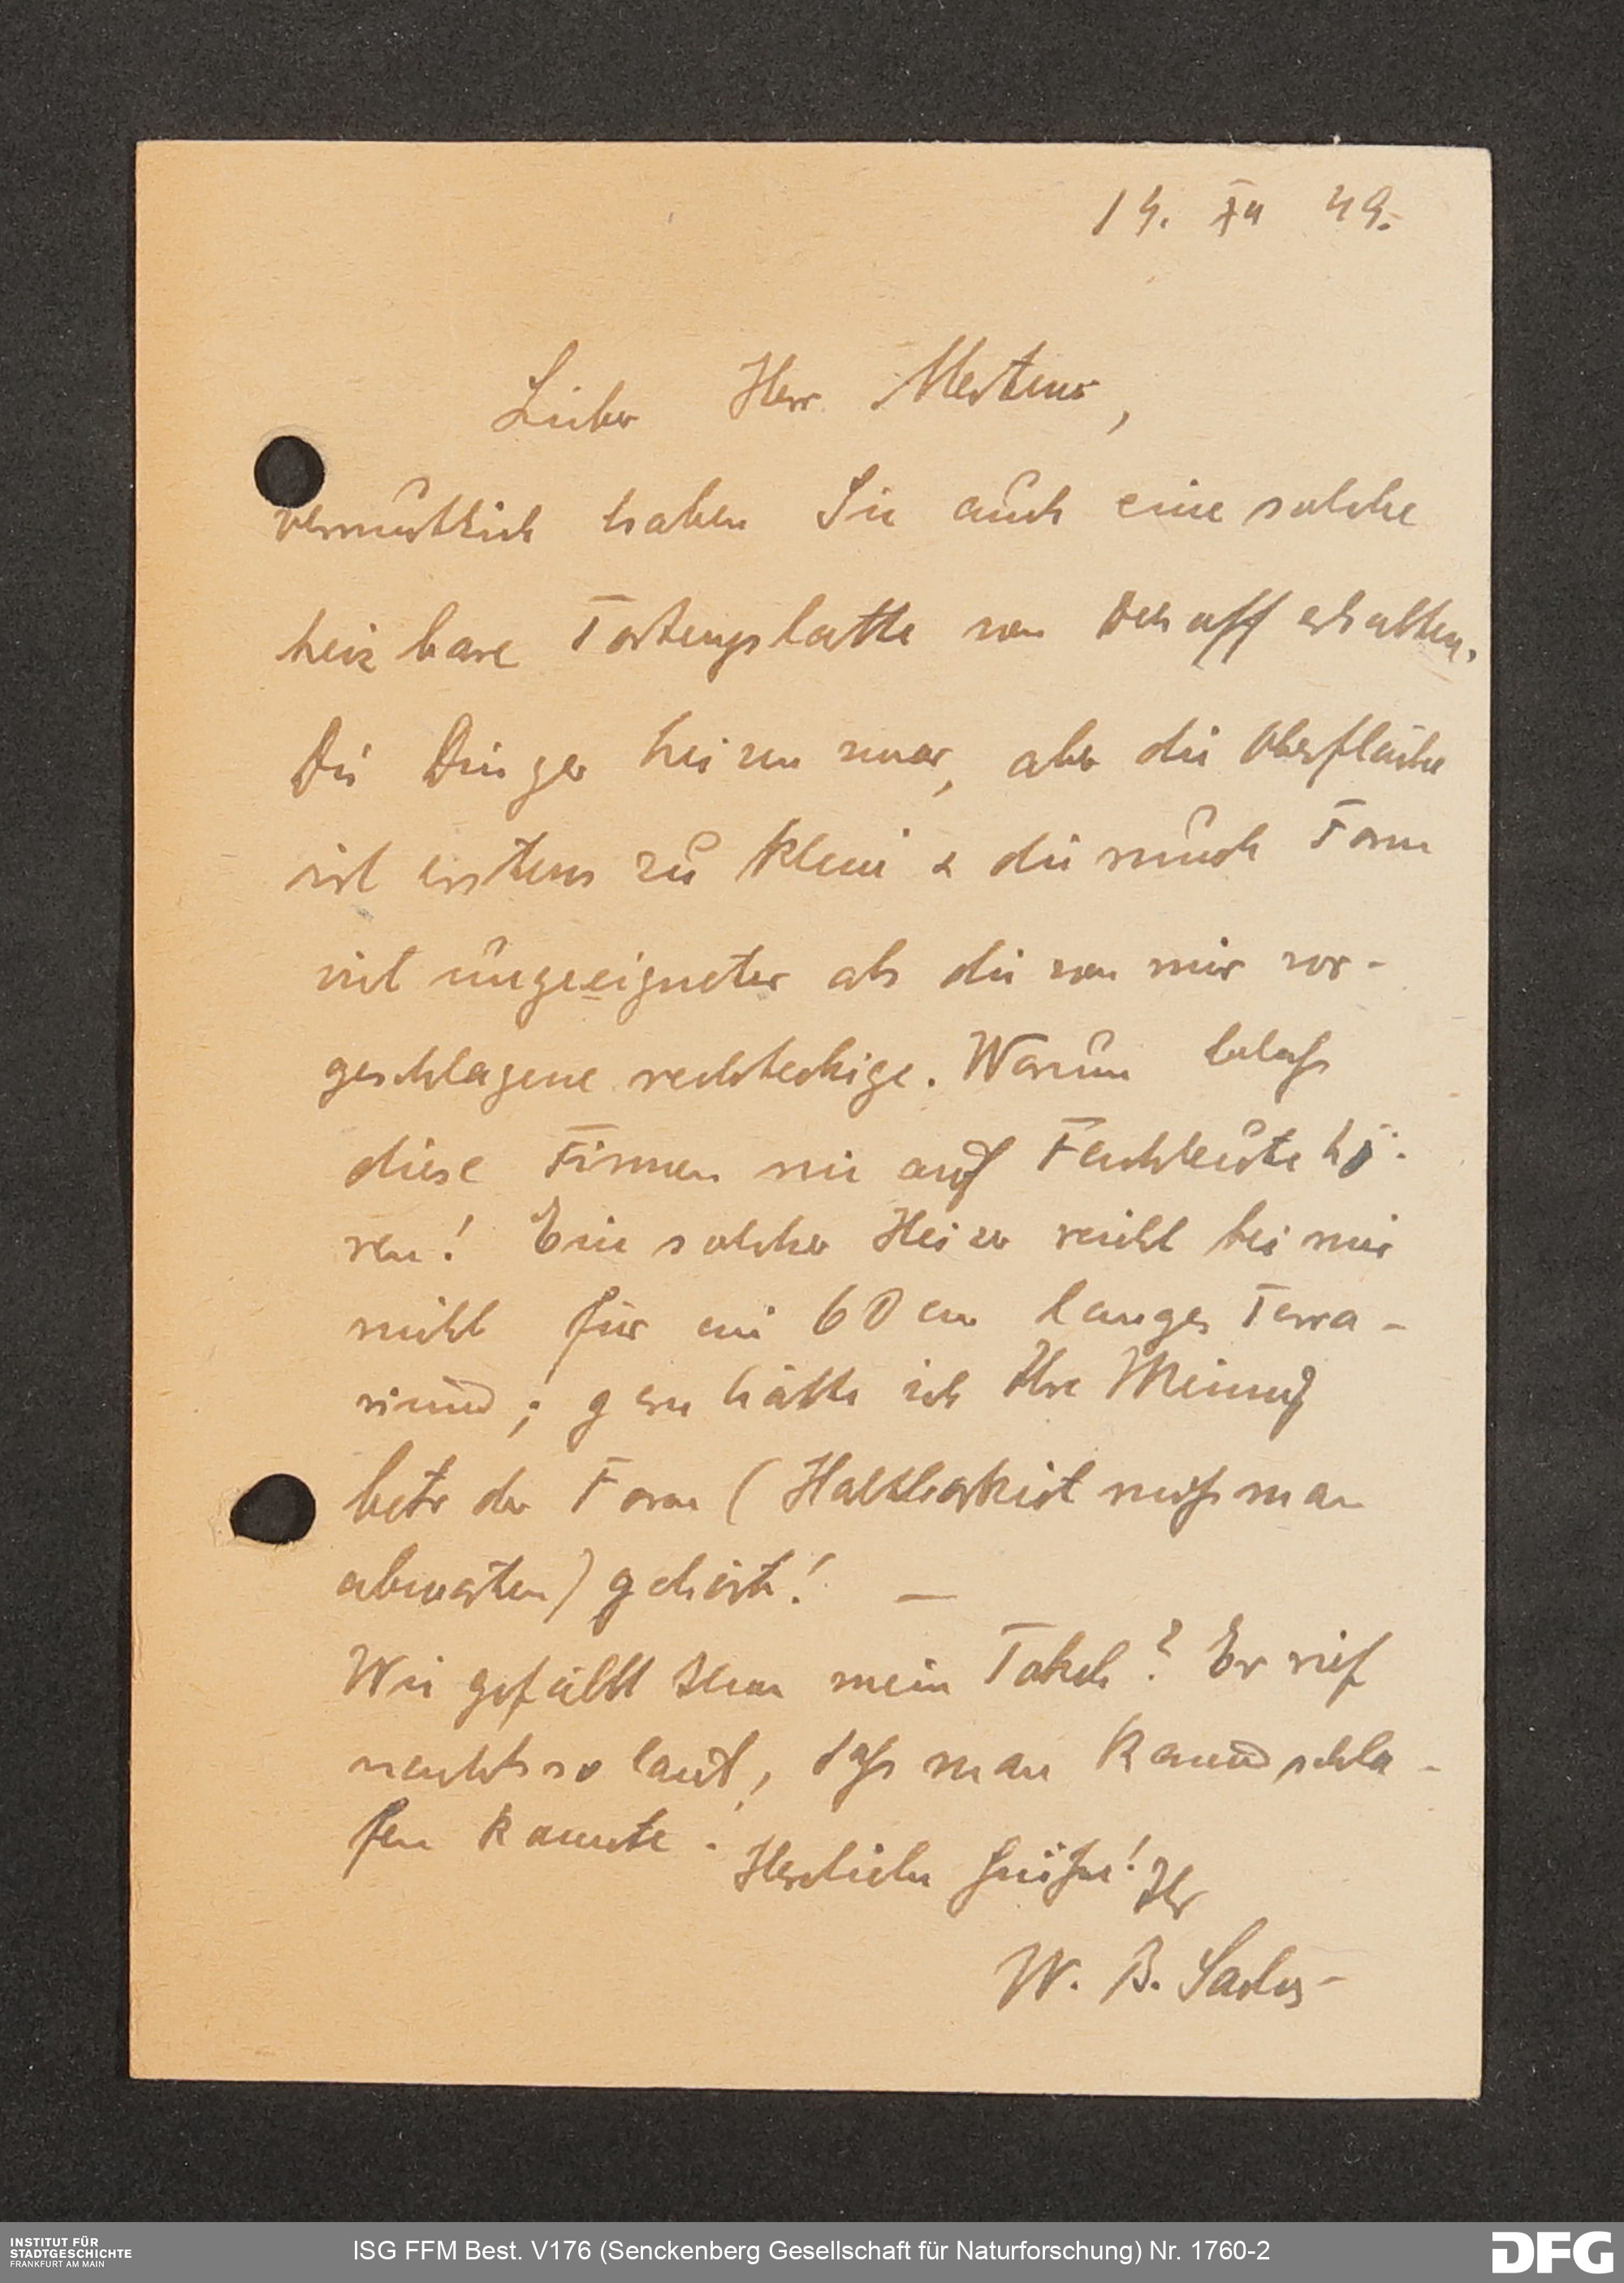 14. XII 49.
Lieber Herr Mertens,
vermutlich haben Sie auch eine solche
heizbare Tortenplatte von erhalten.
Die Dinger heizen zwar, aber die Oberfläche
ist erstens zu klein & die runde Form
viel ungeeigneter als die von mir vor-
geschlagene rechteckige. Warum
diese Firmen nie auf Fachleute hö-
ren! Ein solcher Heizer reicht bei mir
nicht für ein 60 cm langes Terra-
rium; gern hätte ich Ihre Meinung
betr der Form (Haltbarkeit muß man
abwarten) gehört! —
Wie gefällt Ihnen mein Tokeh? Er rief
nachts so laut, daß man kaum schla-
fen konnte. Herzliche Grüße! Ihr
W. B. Sachs-
INSTITUT FÜR
STADTGESCHICHTE
FRANKFURT AM MAIN
ISG FFM Best. V176 (Senckenberg Gesellschaft für Naturforschung) Nr. 1760-2
DFG